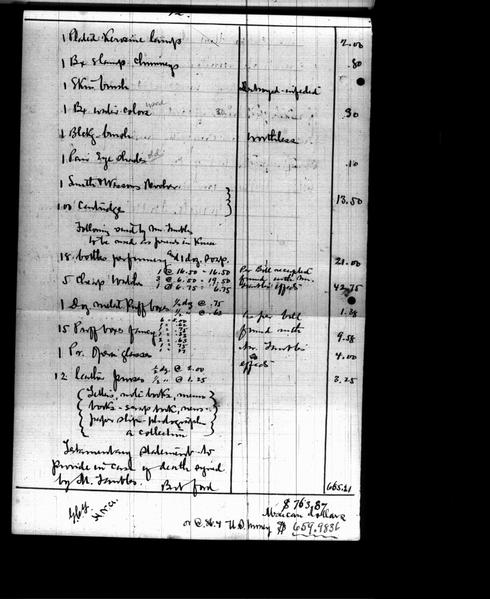 1 Plated Kerosine Lamps 2.00
1 Bx Lamp Chimneys .80
1 Skin brush Destroyed-infected
1 Bx water colors used 30
1 Blckg brush worthless
1 Pair Eye Shades .10
1 Smith & Wesson Revolver
100 Cartridge 13.50
Following
to be used as presents in Korea
18 bottles perfumery and 1 doz. soap. 21.00
5 Cheap Watches 1 @ 16.50 - 16.50 Per Bill accepted
found with Mr.
effects 42.75
@ 6.75
1 Doz metal Puff boxes 1/2 dz @ .75
1/2 " @ .63 As per bill 1.38
15 Puff boxes fancy found with 9.58
1 Pr. Opera glasses Mr. 4.00
effects
12 leather purses 1/2 dz @ 2.00
1/2 " @ 1.25 3.25
Letters, note books, memo
books - scrap book, news-
paper slips - photographs
a collection
Testamentary statement to
provide in case of death signed
by M.
665.21
$763.87
Mexican dollars
or @ U.S. money $ 659.9836